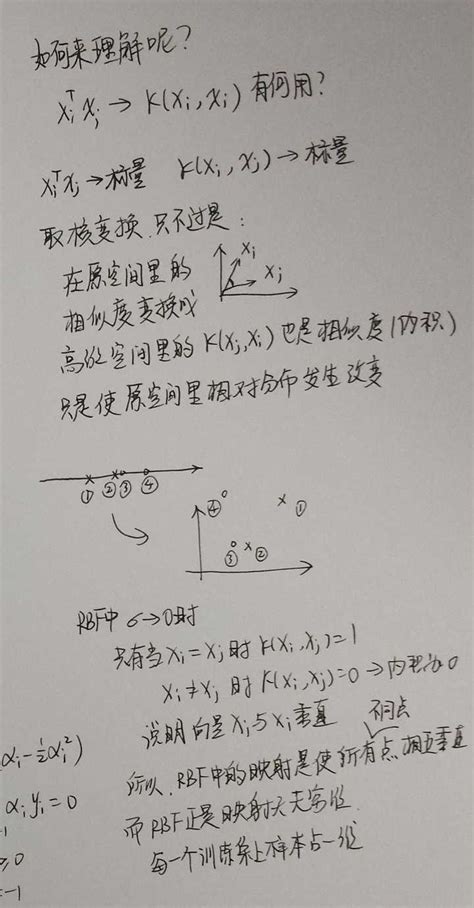 如何来理解呢?
xᵢᵀxⱼ → K(xᵢ, xⱼ) 有何用?
xᵢᵀxⱼ → 标量 K(xᵢ, xⱼ) → 标量
取核变换,只不过是:
在原空间里的
xᵢ
xⱼ
相似度变换成
高维空间里的 K(xⱼ, xᵢ) 也是相似度(内积)
只是使原空间里相对分布发生改变
① ② ③ ④
④ ①
③ ②
RBF中 σ→0时
只有当 xᵢ = xⱼ 时 K(xᵢ, xⱼ)=1
xᵢ ≠ xⱼ 时 K(xᵢ, xⱼ)=0 → 内积为0
说明向量 xᵢ与xⱼ垂直
所以, RBF中的映射是使所有不同点相互垂直
而RBF正是映射无穷维
每一个训练集上样本占一维
αᵢ - ½αᵢ²)
αᵢyᵢ = 0